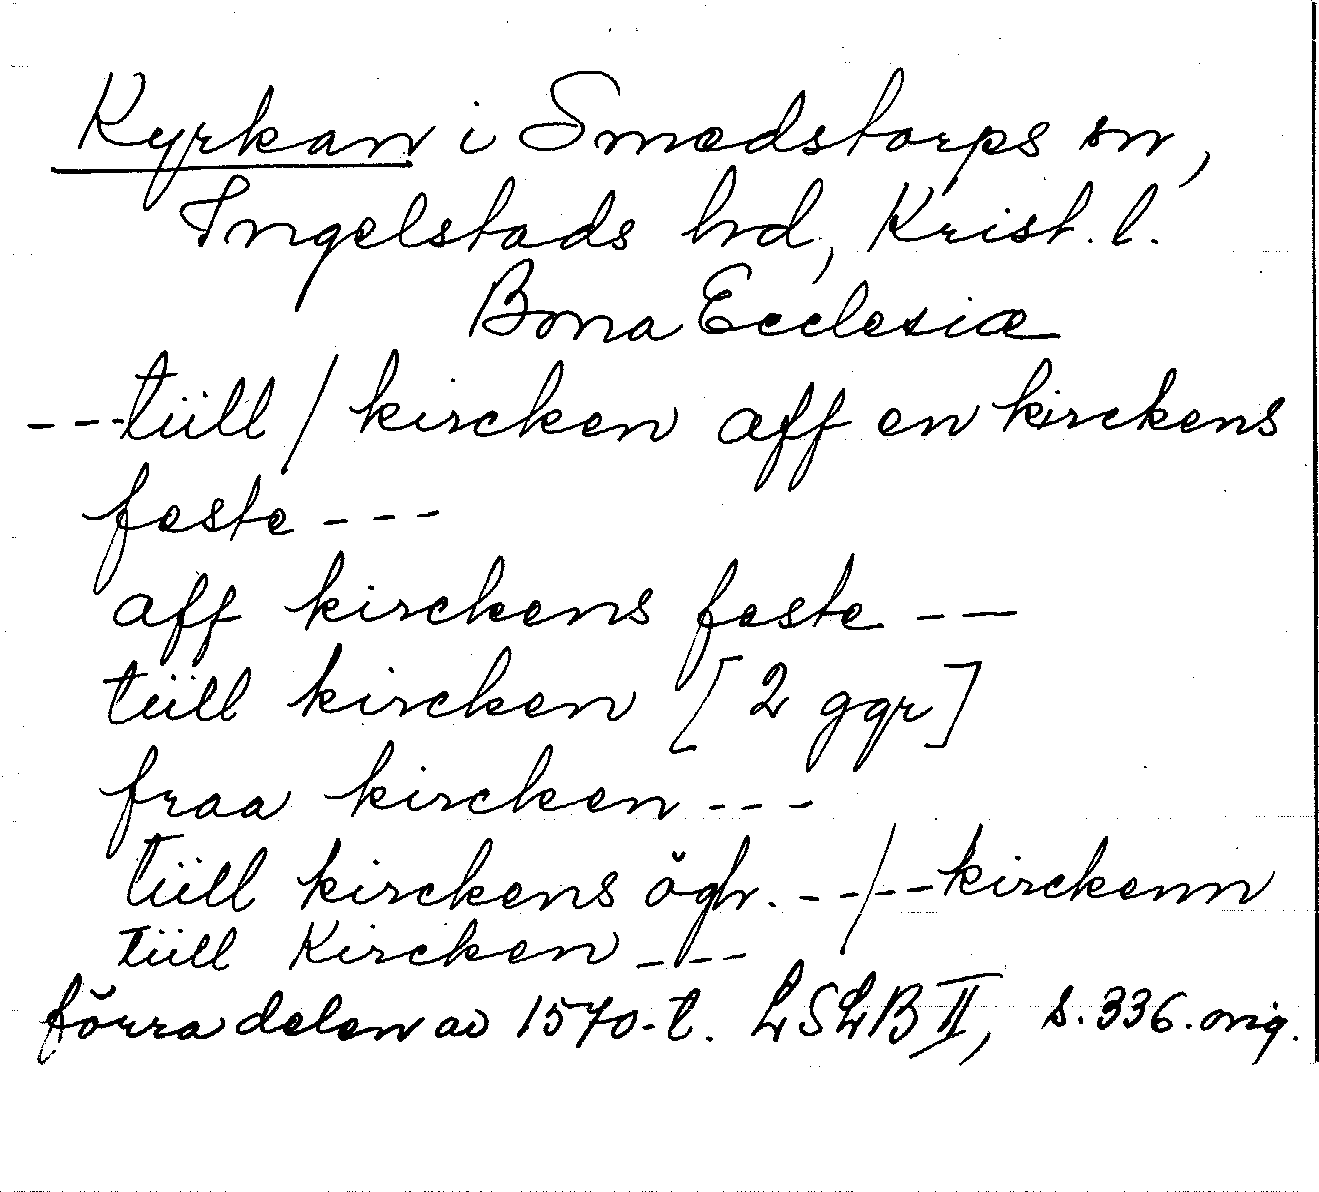 Kyrkan i Smedstorps sn,
Ingelstads hd, Krist. l.
Bona Ecclesiæ
---tüll / kircken aff en kirckens
feste ---
aff kirckens feste --
tüll kircken [2 ggr]
fraa kircken ---
tüll kirckens ögh. ---/-- kirckenn
tüll Kircken ---
förra delen av 1570-t. LSLB II, s. 336. orig.